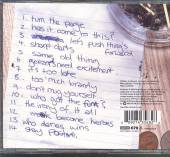 1. turn the page
2. has it come to this?
3. let's push things
forward
4. sharp darts
5. same old thing
6. geezers need excitement
7. it's too late
8. too much brandy
9. don't mug yourself
10. who got the funk?
11. the irony of it all
12. weak become heroes
13. who dares wins
14. stay positive
679